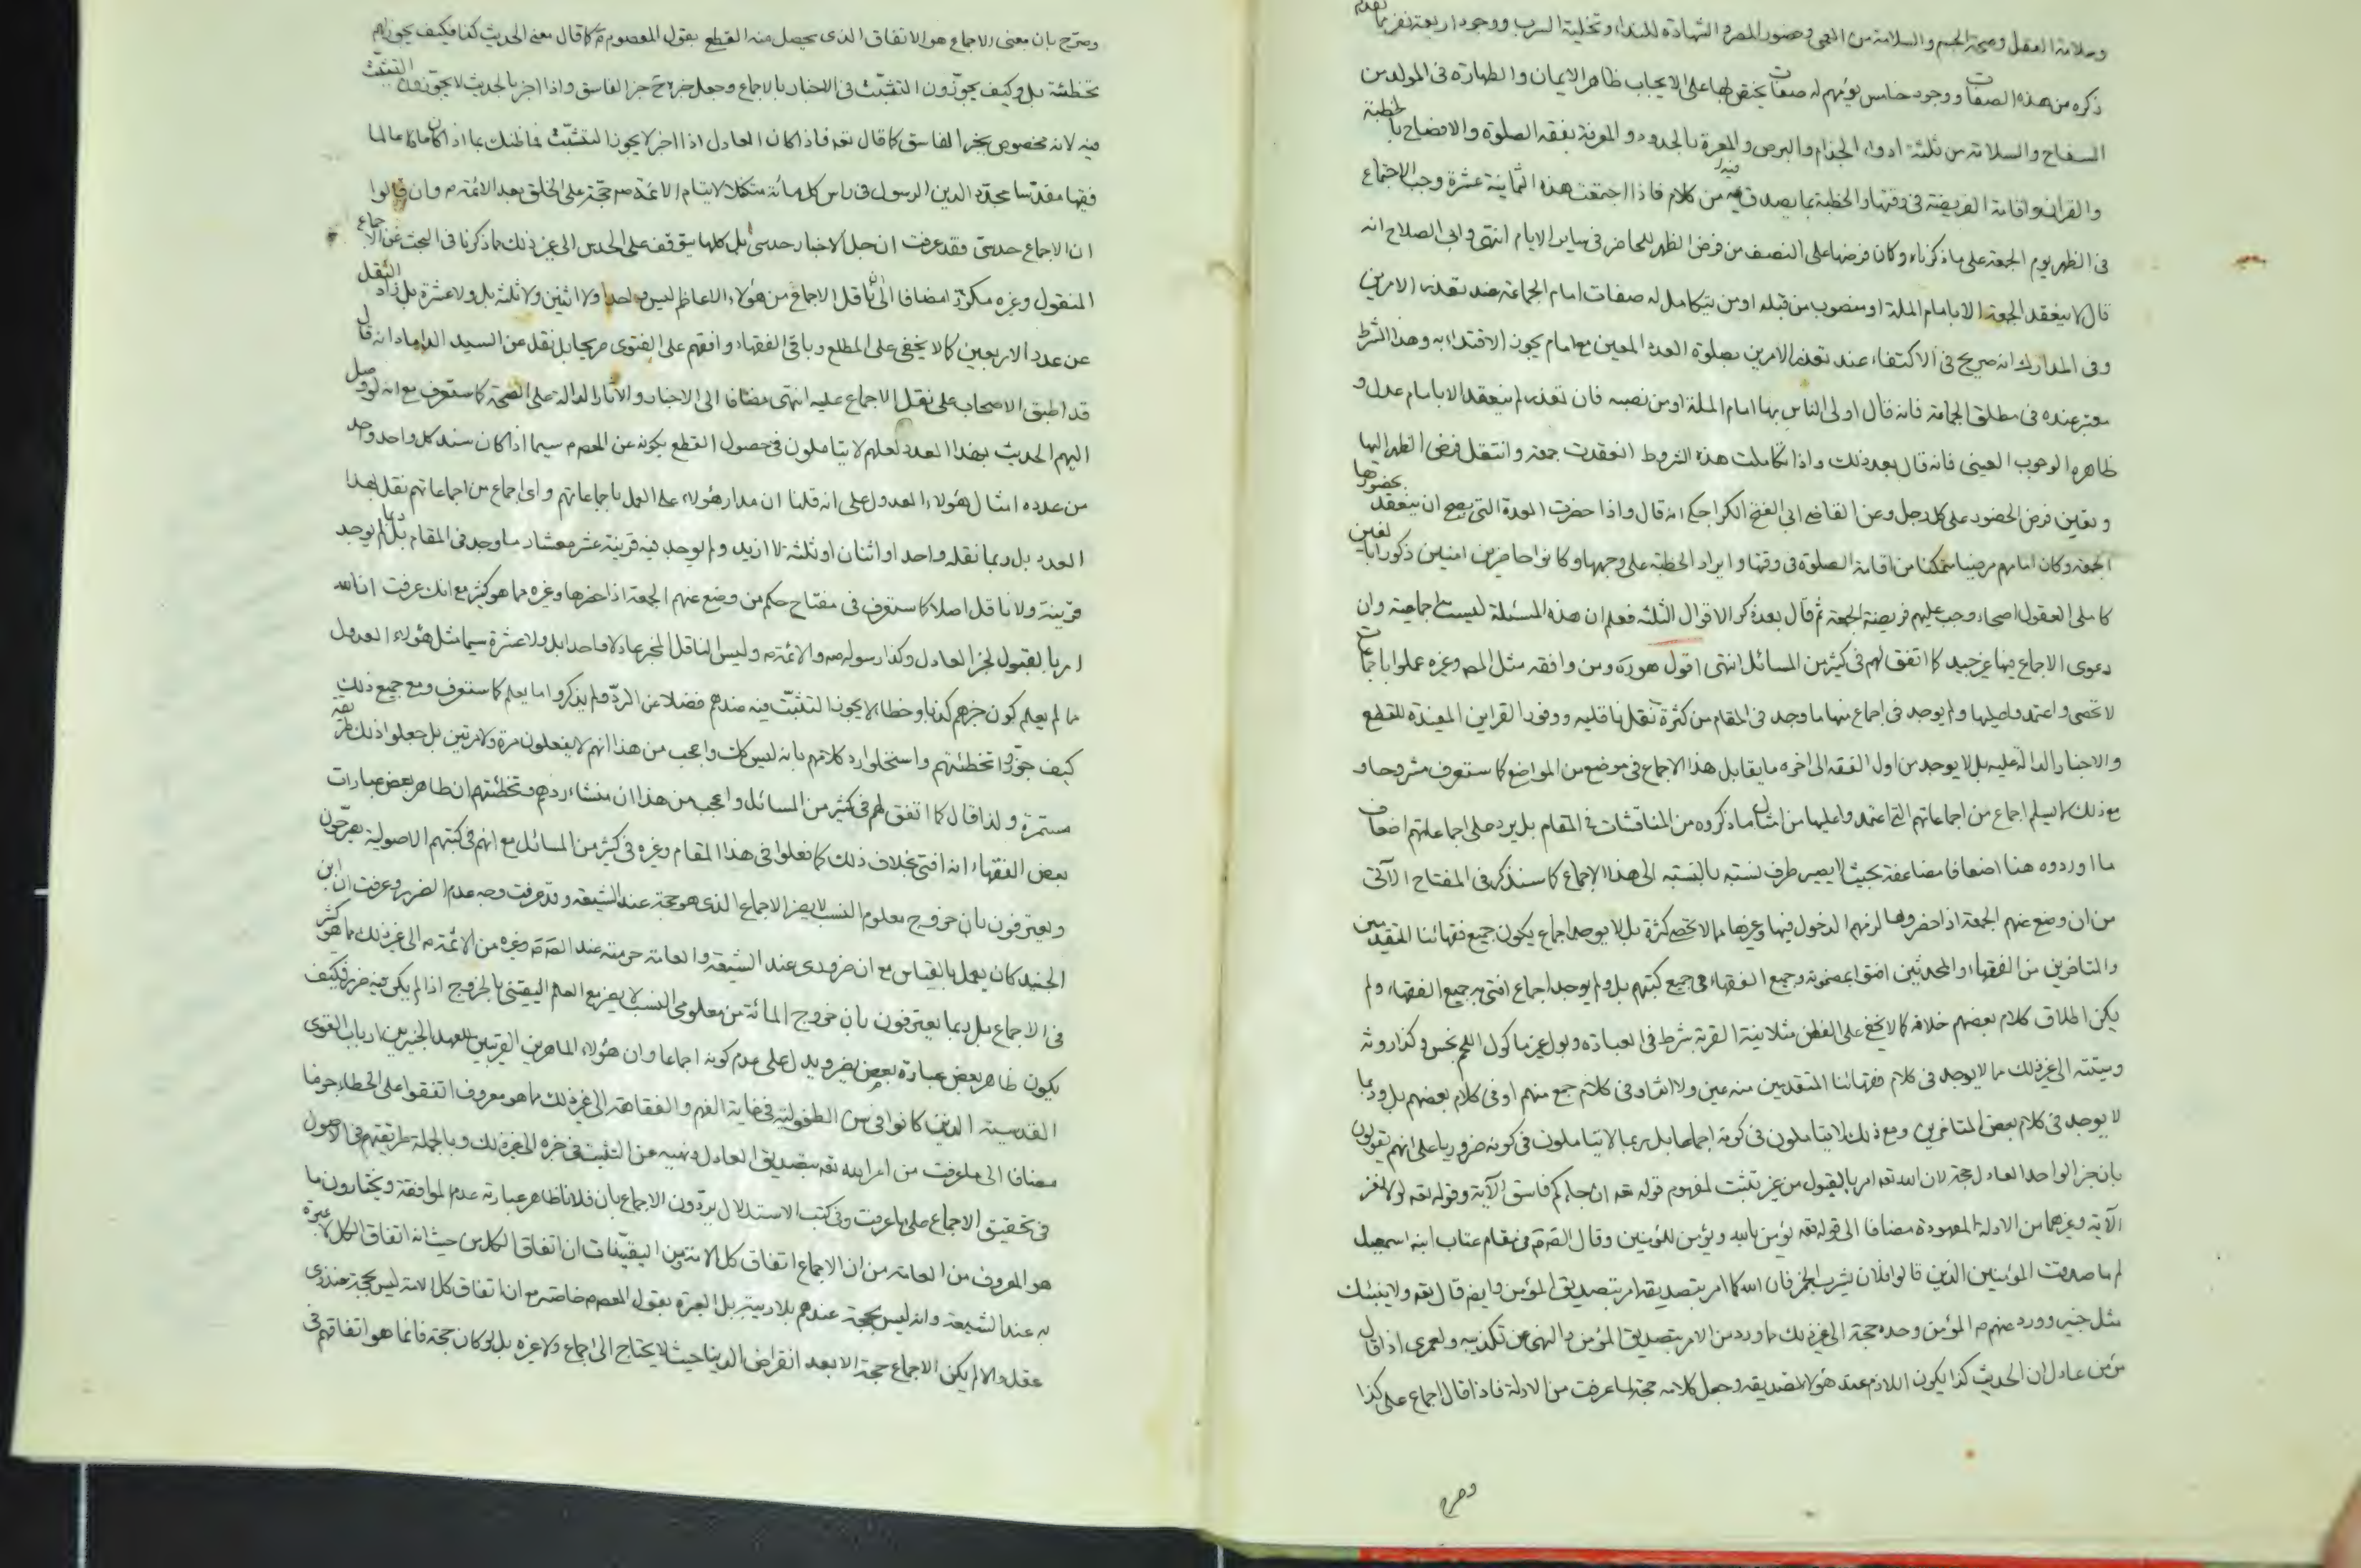 وسلامة العقل وصحة الجسم والسلامة من العمى وحضور المصر والشهادة للنداء وتخلية السرب ووجود اربعة نفر بما تقدم
ذكره من هذه الصفات ووجود خامس يؤمهم له صفات يختص بها على الايجاب ظاهر الايمان والطهارة فى المولد من
السفاح والسلامة من ثلثة ادواء الجذام والبرص والمعرة بالحدود والمعرفة بفقه الصلوة والافصاح بالخطبة
والقران واقامة الفريضة فى وقتها والخطبة بما يصدق فيه من كلام فاذا اجتمعت هذه الثمانية عشرة وجب الاجتماع
فى الظهر يوم الجمعة على ما ذكرناه وكان فرضها على النصف من فرض الظهر للحاضر فى ساير الايام انتهى وابى الصلاح انه
قال لا ينعقد الجمعة الا بامام الملة او منصوب من قبله او من يتكامل له صفات امام الجماعة عند تعذر الامرين
وفى المدارك انه صريح فى الاكتفاء عند تعذر الامرين بصلوة العدد المعين مع امام يجوز الاقتداء به وهذا الشرط
معتبر عنده فى مطلق الجماعة فانه قال اولى الناس بها امام الملة او من نصبه فان تعذر لم ينعقد الا بامام عدل و
ظاهره الوجوب العينى فانه قال بعد ذلك واذا تكاملت هذه الشروط انعقدت جمعة وانتقل فرض الظهر اليها
وتعين فرض الحضور على كل رجل وعن القاضى ابى الفتح الكراجكى انه قال واذا حضرت العدة التى يصح ان ينعقد بحضورها
الجمعة وكان امامهم مرضيا متمكنا من اقامة الصلوة فى وقتها وايراد الخطبة على وجهها وكانوا حاضرين امنين ذكورا بالغين
كاملى العقول اصحاء وجب عليهم فريضة الجمعة ثم قال بعد ذكر الاقوال الثلثة فعلم ان هذه المسئلة ليست اجماعية وان
دعوى الاجماع فيها غير جيد كما اتفق لهم فى كثير من المسائل انتهى اقول هو ره ومن وافقه مثل المص وغيره عملوا باجماعات
لا تحصى واعتمدوا عليها ولم يوجد فى اجماع منها ما وجد فى المقام من كثرة نقل ناقليه ووفور القراين المفيدة للقطع
والاخبار الدالة عليه بل لا يوجد من اول الفقه الى اخره ما يقابل هذا الاجماع فى موضع من المواضع كما ستعرف مشروحا و
مع ذلك لا يسلم اجماع من اجماعاتهم التى اعتمدوا عليها من امثال ما ذكروه من المناقشات فى المقام بل يرد على اجماعاتهم اضعاف
ما اوردوه هنا اضعافا مضاعفة بحيث لا يصير طرف نسبته بالنسبة الى هذا الاجماع كما سنذكر فى المفتاح الآتى
من ان وضع عنهم الجمعة اذا حضروها لزمهم الدخول فيها وغيرها مما لا تحصى كثرة بل لا يوجد اجماع يكون جميع فقهائنا المتقدمين
والمتاخرين من الفقهاء والمحدثين افتوا بمضمونه وجميع الفقهاء فى جميع كتبهم بل ولم يوجد اجماع افتى به جميع الفقهاء ولم
يكن اطلاق كلام بعضهم خلافه كما لا يخفى على الفطن مثلا نية القربة شرط فى العبادة وبول غير ماكول اللحم نجس وكذا روثه
وميتته الى غير ذلك مما لا يوجد فى كلام فقهائنا المتقدمين منه عين ولا اثر او فى كلام جمع منهم او فى كلام بعضهم بل وربما
لا يوجد فى كلام بعض المتاخرين ومع ذلك لا يتاملون فى كونه اجماعا بل ربما لا يتاملون فى كونه ضروريا على انهم يقولون
بان خبر الواحد العادل حجة لان الله تعه امر بالقبول من غير تثبت لمفهوم قوله تعه ان جاءكم فاسق الآية وقوله تعه لولا نفر
الآية وغيرهما من الادلة المعهودة مضافا الى قوله تعه يؤمن بالله ويؤمن للمؤمنين وقال الص ع فى مقام عتاب ابنه اسمعيل
لم ما صدقت المؤمنين الذين قالوا فلان يشرب الخمر فان الله كما امر بتصديقه امر بتصديق المؤمن وايض قال تعه ولا ينبئك
مثل خبير وورد عنهم ع المؤمن وحده حجة الى غير ذلك مما ورد من الامر بتصديق المؤمن والنهى عن تكذيبه ولعمرى اذا قال
مؤمن عادل ان الحديث كذا يكون اللازم عند هؤلاء تصديقه وجعل كلامه حجة لما عرفت من الادلة فاذا قال اجماع على كذا
وصرح
وصرح بان معنى الاجماع هو الاتفاق الذى يحصل منه القطع بقول المعصوم ع كما قال معنى الحديث كذا فكيف يجوز لهم
تخطئته بل وكيف يجوزون التثبت فى الاخبار بالاجماع وجعل خبره ح خبر الفاسق واذا اخبر بالحديث لا يجوزون التثبت
فيه لانه مخصوص بخبر الفاسق كما قال تعه فاذا كان العادل اذا اخبر لا يجوز التثبت فما ظنك بما اذا كان اماما عالما
فقيها مقدسا مجدد الدين الرسول فى راس كل مائة متكفلا لايتام الائمة ع حجة على الخلق بعد الائمة ع وان قالوا
ان الاجماع حدسى فقد عرفت ان جل الاخبار حدسى بل كلها يتوقف على الحدس الى غير ذلك مما ذكرنا فى البحث عن الاجماع
المنقول وغيره مكررا مضافا الى ان ناقل الاجماع من هؤلاء الاعاظم ليس بواحد ولا اثنين ولا ثلثة بل ولا عشرة بل زاد النقل
عن عدد الاربعين كما لا يخفى على المطلع وباقى الفقهاء وافقهم على الفتوى صريحا بل نقل عن السيد الداماد انه قال
قد اطبق الاصحاب على نقل الاجماع عليه انتهى مضافا الى الاخبار والآثار الدالة على الصحة كما ستعرف مع انه لو وصل
اليهم الحديث بهذا العدد لعلهم لا يتاملون فى حصول القطع بكونه عن المعصوم سيما اذا كان سند كل واحد واحد
من عدده امثال هؤلاء العدول على انه قلنا ان مدار هؤلاء على العمل باجماعاتهم واى اجماع من اجماعاتهم نقل بهذا
العدد بل ربما نقله واحد او اثنان او ثلثة لا ازيد ولم يوجد فيه قرينة عشر معشار ما وجد فى المقام بل ربما لم يوجد
قرينة ولا ناقل اصلا كما ستعرف فى مفتاح حكم من وضع عنهم الجمعة اذا حضرها وغيره مما هو كثير مع انك عرفت ان الله
امر بالقبول لخبر العادل وكذا رسوله ص والائمة ع وليس الناقل المخبر عادلا واحدا بل ولا عشرة سيما مثل هؤلاء العدول
ما لم يعلم كون خبرهم كذبا وخطا لا يجوز التثبت فيه عندهم فضلا عن الرد ولم يذكروا ما يعلم كما ستعرف ومع جميع ذلك
كيف جوزوا تخطئتهم واستحلوا رد كلامهم بانه ليس كك واعجب من هذا انهم لا يفعلون مرة ولا مرتين بل جعلوا ذلك طريقة
مستمرة ولذا قال كما اتفق لهم فى كثير من المسائل واعجب من هذا ان منشاء ردهم وتخطئتهم ان ظاهر بعض عبارات
بعض الفقهاء انه افتى بخلاف ذلك كما فعلوا فى هذا المقام وغيره فى كثير من المسائل مع انهم فى كتبهم الاصولية يصرحون
ويعترفون بان خروج معلوم النسب لا يضر الاجماع الذى هو حجة عند الشيعة وقد عرفت وجه عدم الضرر وعرفت ان ابن
الجنيد كان يعمل بالقياس مع ان ضرورى عند الشيعة والعامة حرمته عند الص ع وغيره من الائمة ع الى غير ذلك مما هو كثير
فى الاجماع بل ربما يعترفون بان خروج المائة من معلومى النسب لا يضر مع العلم اليقينى بالخروج اذا لم يكن فيه ضرر فكيف
يكون ظاهر بعض عبارة بعض يضر ويدل على عدم كونه اجماعا وان هؤلاء الماهرين القريبين للعهد الخبيرين ارباب القوى
القدسية الذين كانوا فى سن الطفولية فى غاية الفهم والفقاهة الى غير ذلك مما هو معروف اتفقوا على الخطاء جزما
مضافا الى ما عرفت من امر الله تعه بتصديق العادل ونهيه عن التثبت فى خبره الى غير ذلك وبالجملة طريقتهم فى الاصول
فى تحقيق الاجماع على ما عرفت وفى كتب الاستدلال يردون الاجماع بان فلانا ظاهر عبارته عدم الموافقة ويختارون ما
هو المعروف من العامة من ان الاجماع اتفاق كل الامة ومن اليقينيات ان اتفاق الكل من حيث انه اتفاق الكل لا عبرة
به عند الشيعة وانه ليس بحجة عندهم بلا ريبة بل العبرة بقول المعصوم خاصة مع ان اتفاق كل الامة ليس بحجة عند ذى
عقل والا لم يكن الاجماع حجة الا بعد انقراض الدنيا حيث لا يحتاج الى اجماع ولا غيره بل لو كان حجة فانما هو اتفاقهم فى